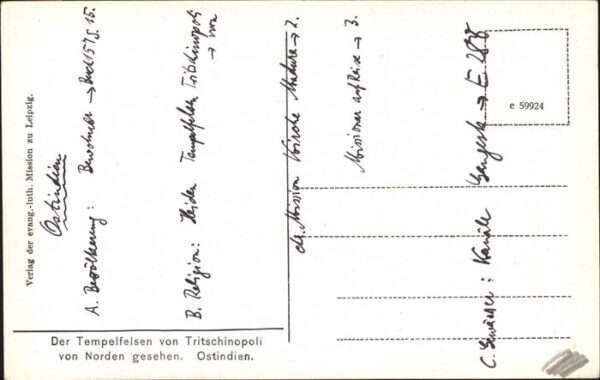 Verlag der evang.-luth. Mission zu Leipzig.
Ostindien
A. Bevölkerung: Bewohner → Buch 157 S. 15.
B. Religion: Heiden Tempelfelsen Tritschinopoli
→
Mission Kirche Madura → 2.
Missionar auf Reise → 3.
C. Gewässer: Kanäle → E 288
e 59924
Der Tempelfelsen von Tritschinopoli
von Norden gesehen. Ostindien.